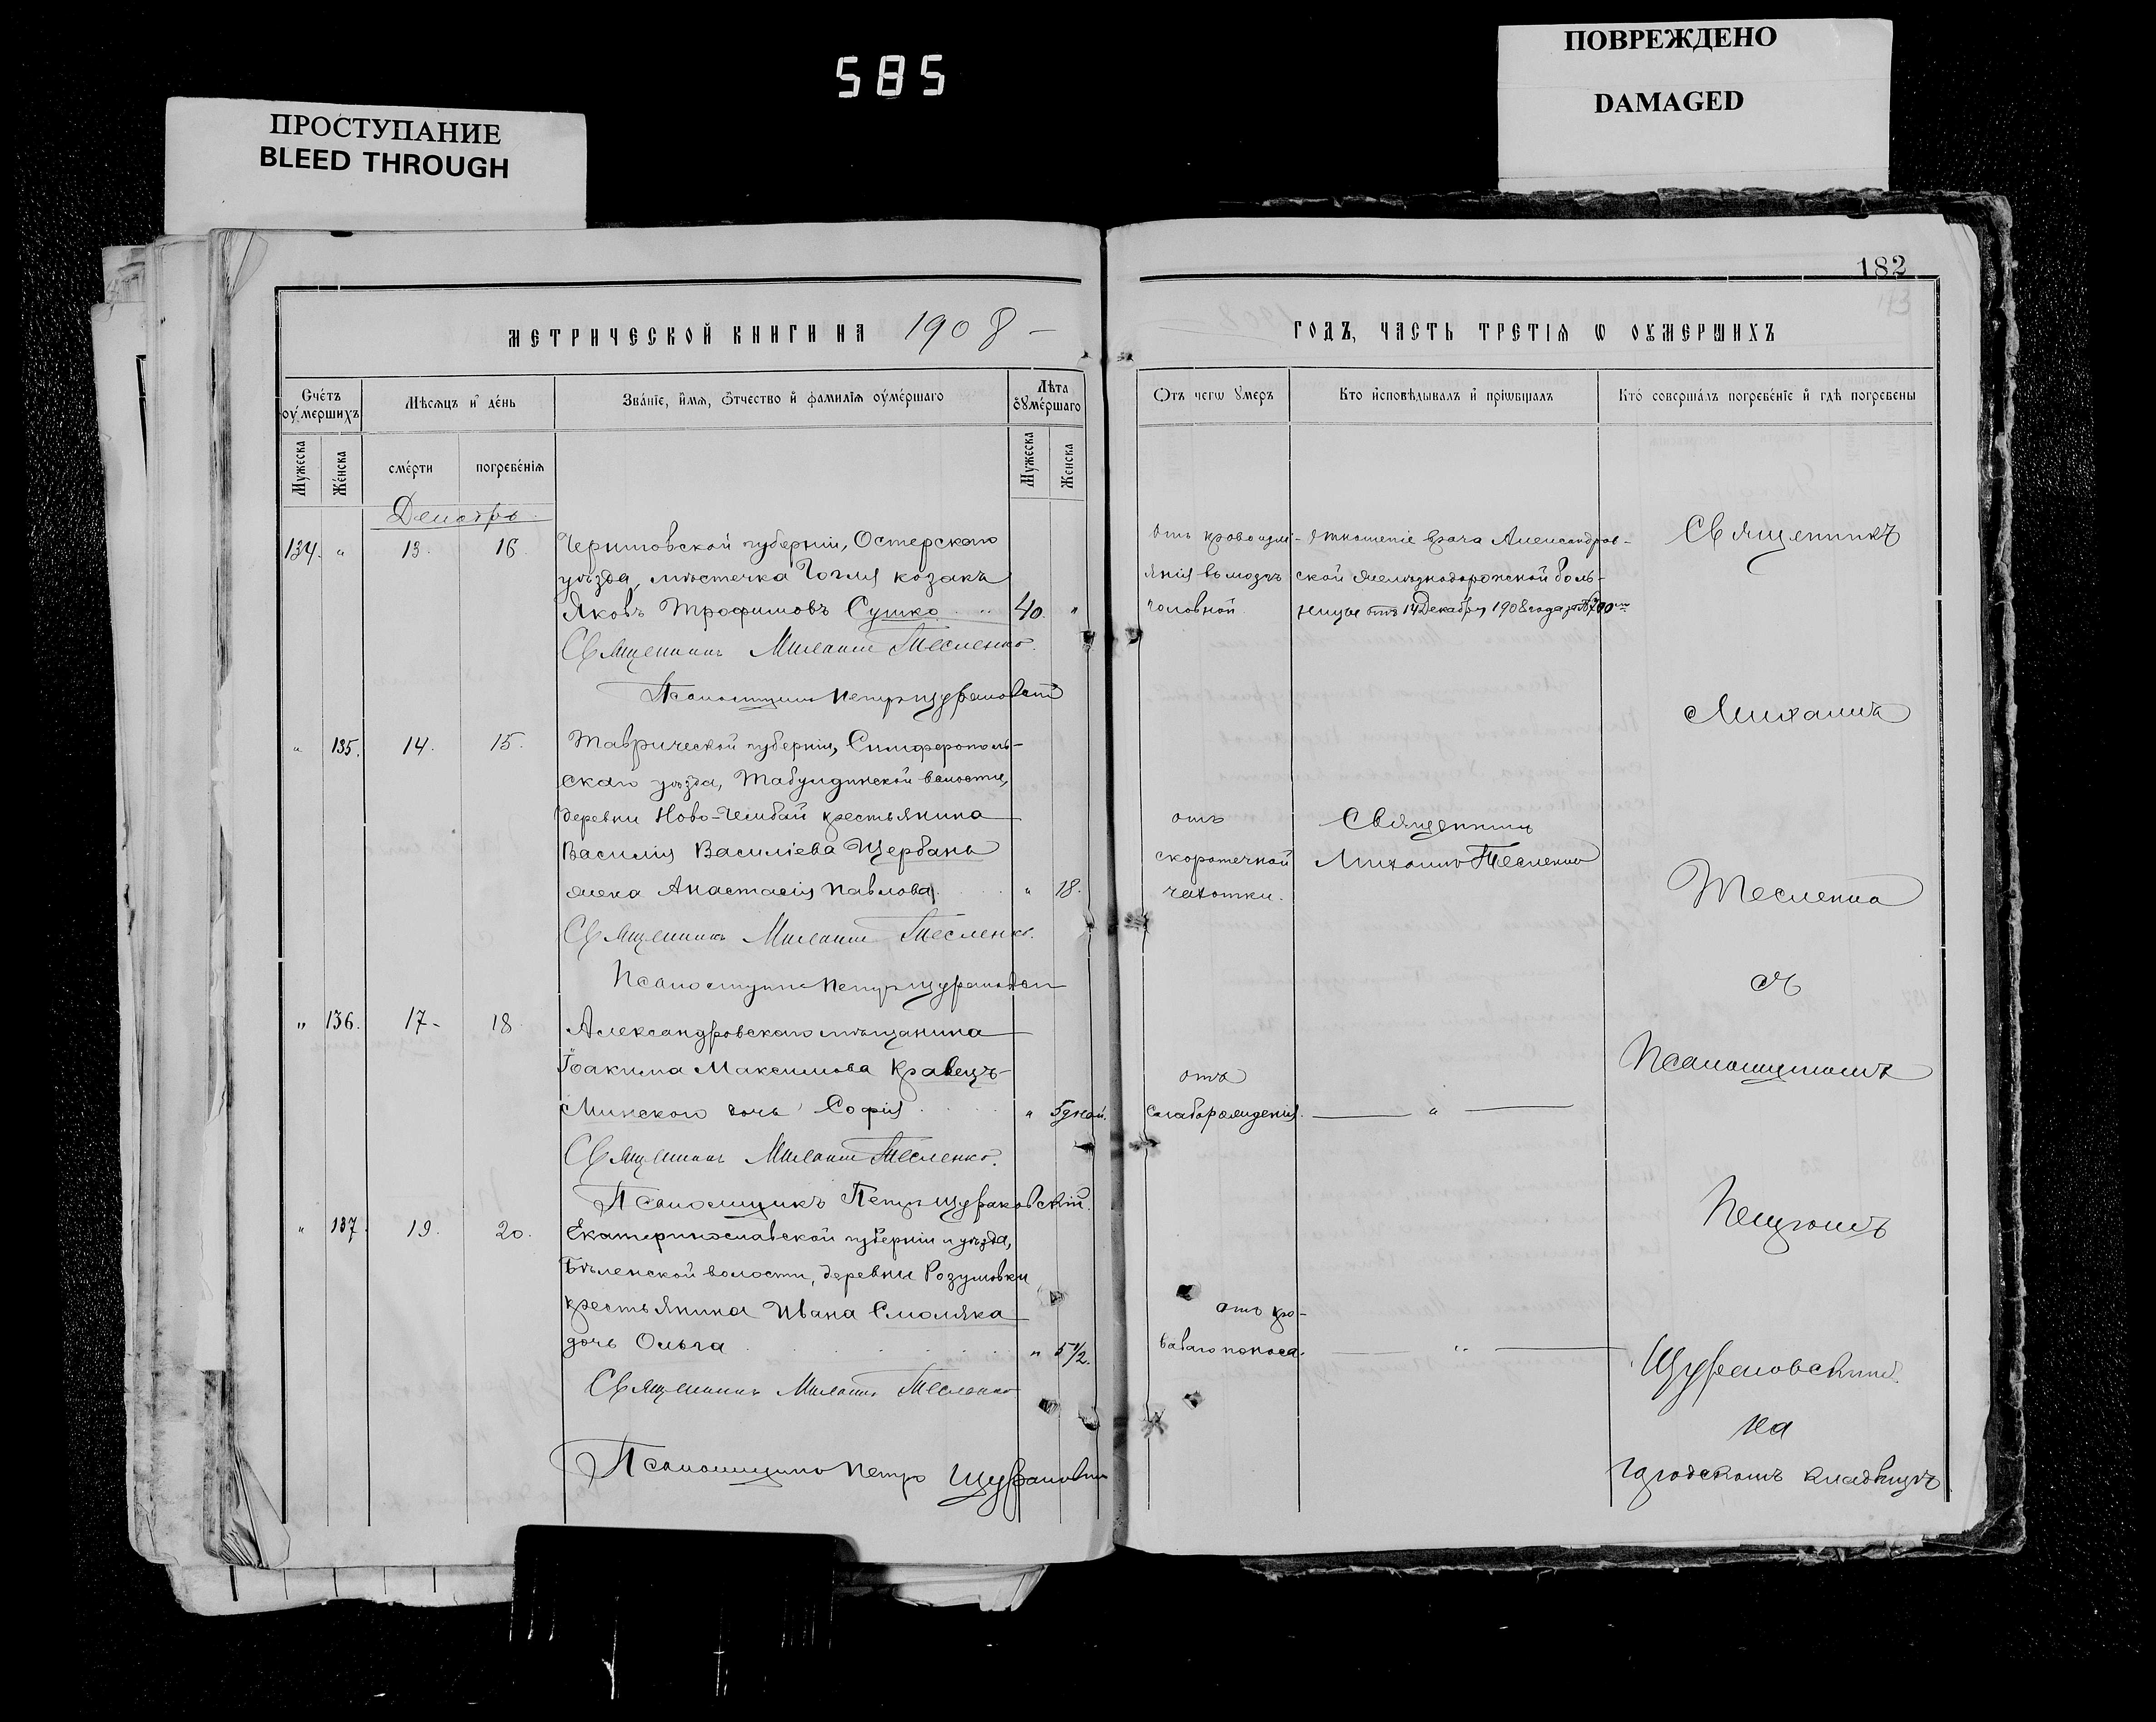 585
ПРОСТУПАНИЕ
BLEED THROUGH
ПОВРЕЖДЕНО
DAMAGED
182
МЕТРИЧЕСКОЙ КНИГИ НА 1908
Счетъ оумершихъ
Мѣсяцъ и день
Званіе, имя, отчество и фамилія оумершаго
Лѣта оумершаго
Мужеска
Женска
смерти
погребенія
Мужеска
Женска
Декабрь
134. " 13. 16. Черниговской губерніи, Остерскаго
уѣзда, мѣстечка Гоголя козакъ
Яковъ Трофимовъ Сушко 40. "
Священникъ Михаилъ Тесленко.
Псаломщикъ Петръ Щураковскій
" 135. 14. 15. Таврической губерніи, Симферополь-
скаго уѣзда, Табулдинской волости,
деревни Ново-Чембай крестьянина
Василія Василіева Щербань
жена Анастасія Павлова " 18.
Священникъ Михаилъ Тесленко.
Псаломщикъ Петръ Щураковскій
" 136. 17. 18. Александровскаго мѣщанина
Іоакима Максимова Кравецъ-
Минскаго дочь Софія " 5 дней.
Священникъ Михаилъ Тесленко.
Псаломщикъ Петръ Щураковскій.
" 137. 19. 20. Екатеринославской губерніи и уѣзда,
Бѣленской волости, деревни Розумовки
крестьянина Ивана Смоляка
дочь Ольга " 5 1/2.
Священникъ Михаилъ Тесленко
Псаломщикъ Петръ Щураковскій
ГОДЪ, ЧАСТЬ ТРЕТІЯ Ѡ ОУМЕРШИХЪ
Отъ чегѡ умеръ
Кто исповѣдывалъ и пріѡбщалъ
Кто совершалъ погребеніе и гдѣ погребены
отъ кровоизлі-
янія въ мозгъ
головной
Отношеніе врача Александров-
ской желѣзнодорожной боль-
ницы отъ 14 Декабря 1908 года за №
отъ
скоротечной
чахотки.
Священникъ
Михаилъ Тесленко
отъ
слаборожденія. "
отъ кро-
ваваго поноса. "
Священникъ
Михаилъ
Тесленко
съ
Псаломщикомъ
Петромъ
Щураковскимъ
на
городскомъ кладбищѣ